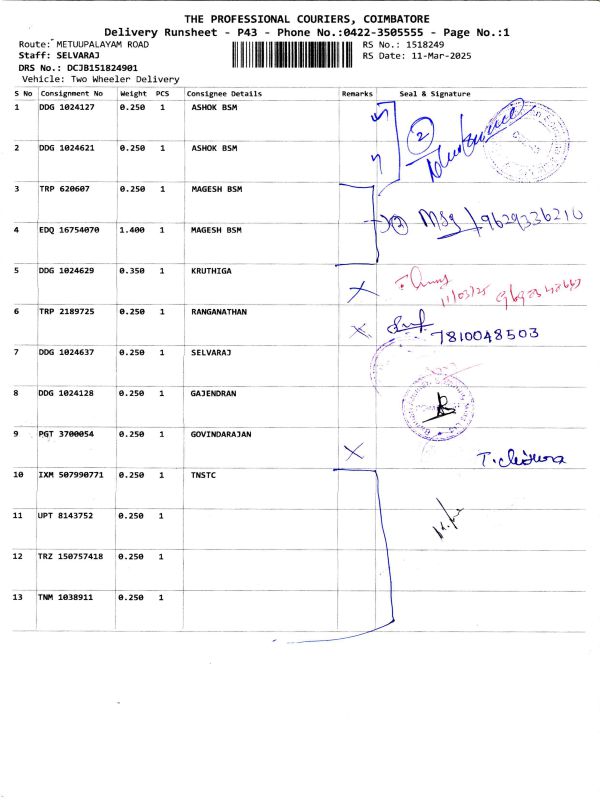 THE PROFESSIONAL COURIERS, COIMBATORE
Delivery Runsheet - P43 - Phone No.:0422-3505555 - Page No.:1
Route: METUUPALAYAM ROAD RS No.: 1518249
Staff: SELVARAJ RS Date: 11-Mar-2025
DRS No.: DCJB151824901
Vehicle: Two Wheeler Delivery
S No Consignment No Weight PCS Consignee Details Remarks Seal & Signature
1 DDG 1024127 0.250 1 ASHOK BSM
2
2 DDG 1024621 0.250 1 ASHOK BSM
3 TRP 620607 0.250 1 MAGESH BSM
2 9629336210
4 EDQ 16754070 1.400 1 MAGESH BSM
5 DDG 1024629 0.350 1 KRUTHIGA
11/03/25
6 TRP 2189725 0.250 1 RANGANATHAN
7810048503
7 DDG 1024637 0.250 1 SELVARAJ
8 DDG 1024128 0.250 1 GAJENDRAN
9 PGT 3700054 0.250 1 GOVINDARAJAN
10 IXM 507990771 0.250 1 TNSTC
11 UPT 8143752 0.250 1
12 TRZ 150757418 0.250 1
13 TNM 1038911 0.250 1